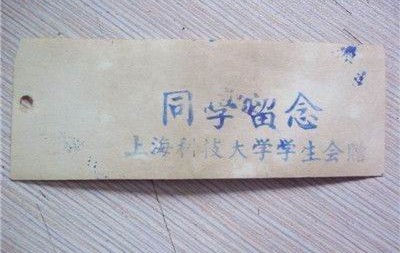 同学留念
上海科技大学学生会赠